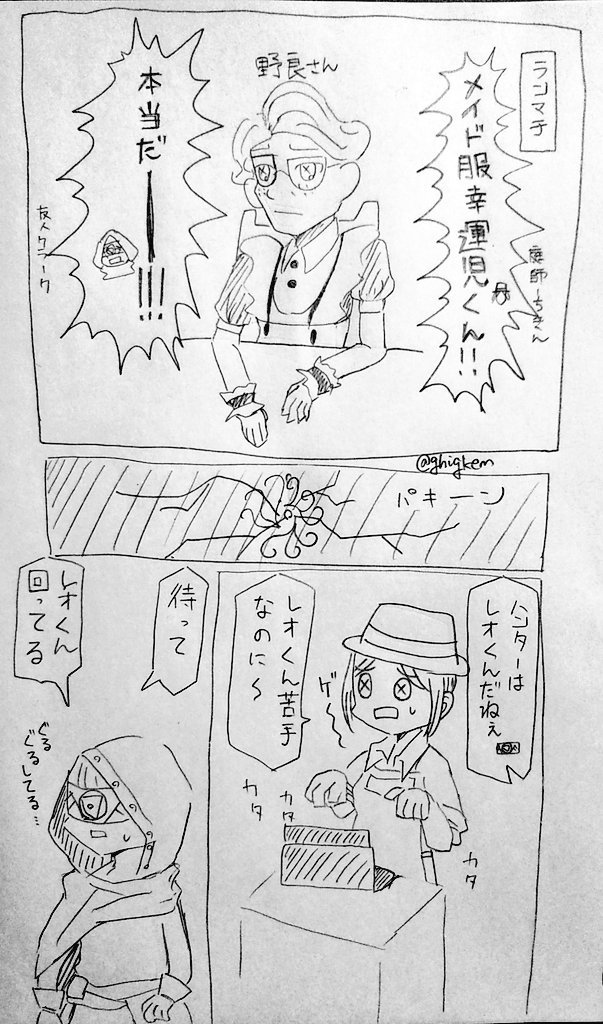 ランマチ
メイド服幸運児くん!!
庭師ーちきん
野良さん
本当だ――!!!
友人クニーク
@ghigkem
パキーン
ハンターは
レオくんだねぇ
レオくん苦手
なのに〜
ゲーー
カタ
カタ
カタ
待って
レオくん
回ってる
ぐる
ぐるしてる…